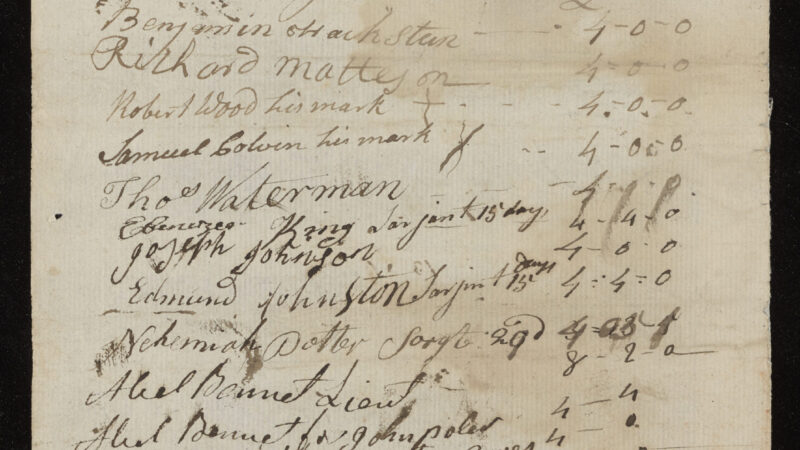 Benjamin 4-0-0
Richard Matteson 4-0-0
Robert Wood his mark 4-0-0
Samuel Colvin his mark 4-0-0
Thos Waterman 4
Ebenezer King Sarjant 15 days 4-4-0
Joseph Johnson 4-0-0
Edmund Johnston Sarjint 15 days 4-4-0
Nehemiah Potter Sorgt 29d 4
Abel Bennet Lieut 8-2-0
Abel Bennet for John 4-4
4-0